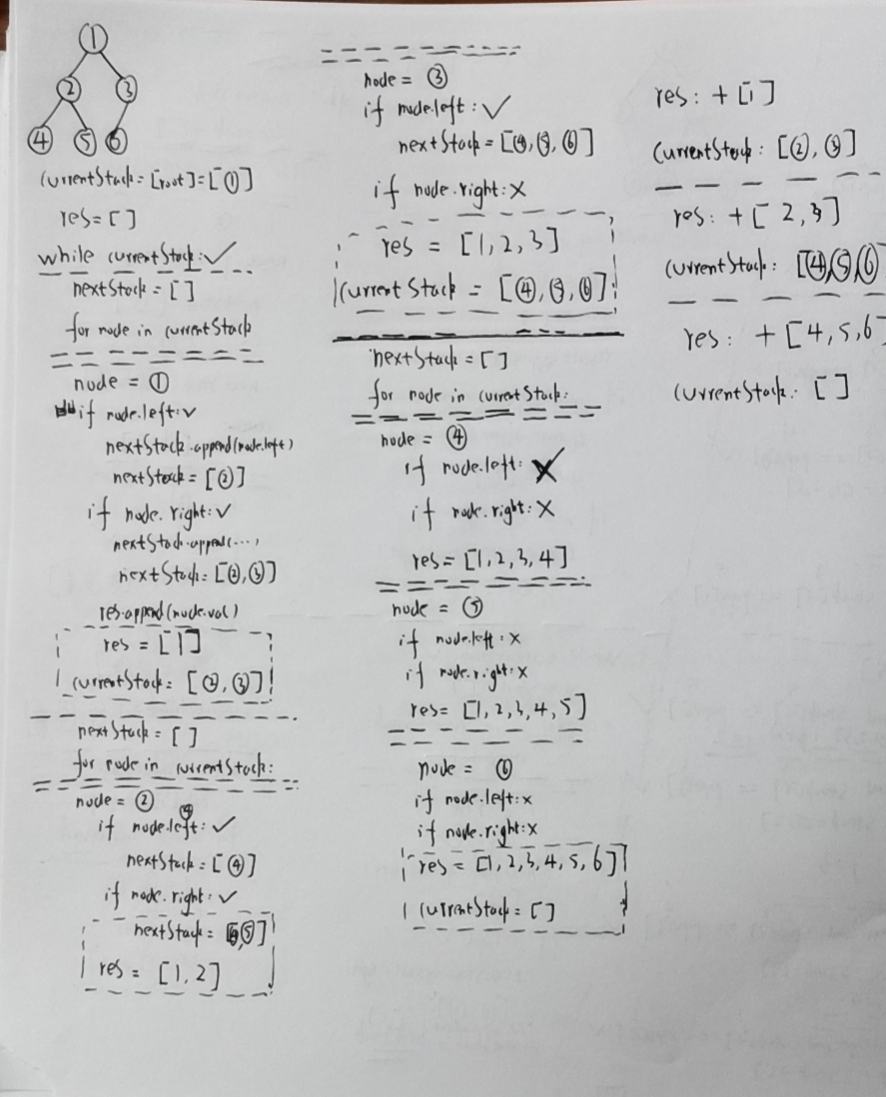 ①
② ③
④ ⑤ ⑥
currentStack = [root] = [①]
res = []
while currentStack: ✓
nextStack = []
for node in currentStack
node = ①
if node.left: ✓
nextStack.append(node.left)
nextStack = [②]
if node.right: ✓
nextStack.append(...,
nextStack = [②,③]
res.append(node.val)
res = [1]
currentStack = [②,③]
nextStack = []
for node in currentStack:
node = ②
if node.left: ✓
nextStack = [④]
if node.right: ✓
nextStack = [④,⑤]
res = [1,2]
node = ③
if node.left: ✓
nextStack = [④,⑤,⑥]
if node.right: X
res = [1,2,3]
currentStack = [④,⑤,⑥]
nextStack = []
for node in currentStack:
node = ④
if node.left: X
if node.right: X
res = [1,2,3,4]
node = ⑤
if node.left: X
if node.right: X
res = [1,2,3,4,5]
node = ⑥
if node.left: x
if node.right: x
res = [1,2,3,4,5,6]
currentStack = []
res: + [1]
currentStack: [②,③]
res: + [2,3]
currentStack: [④,⑤,⑥]
res: + [4,5,6]
currentStack: []